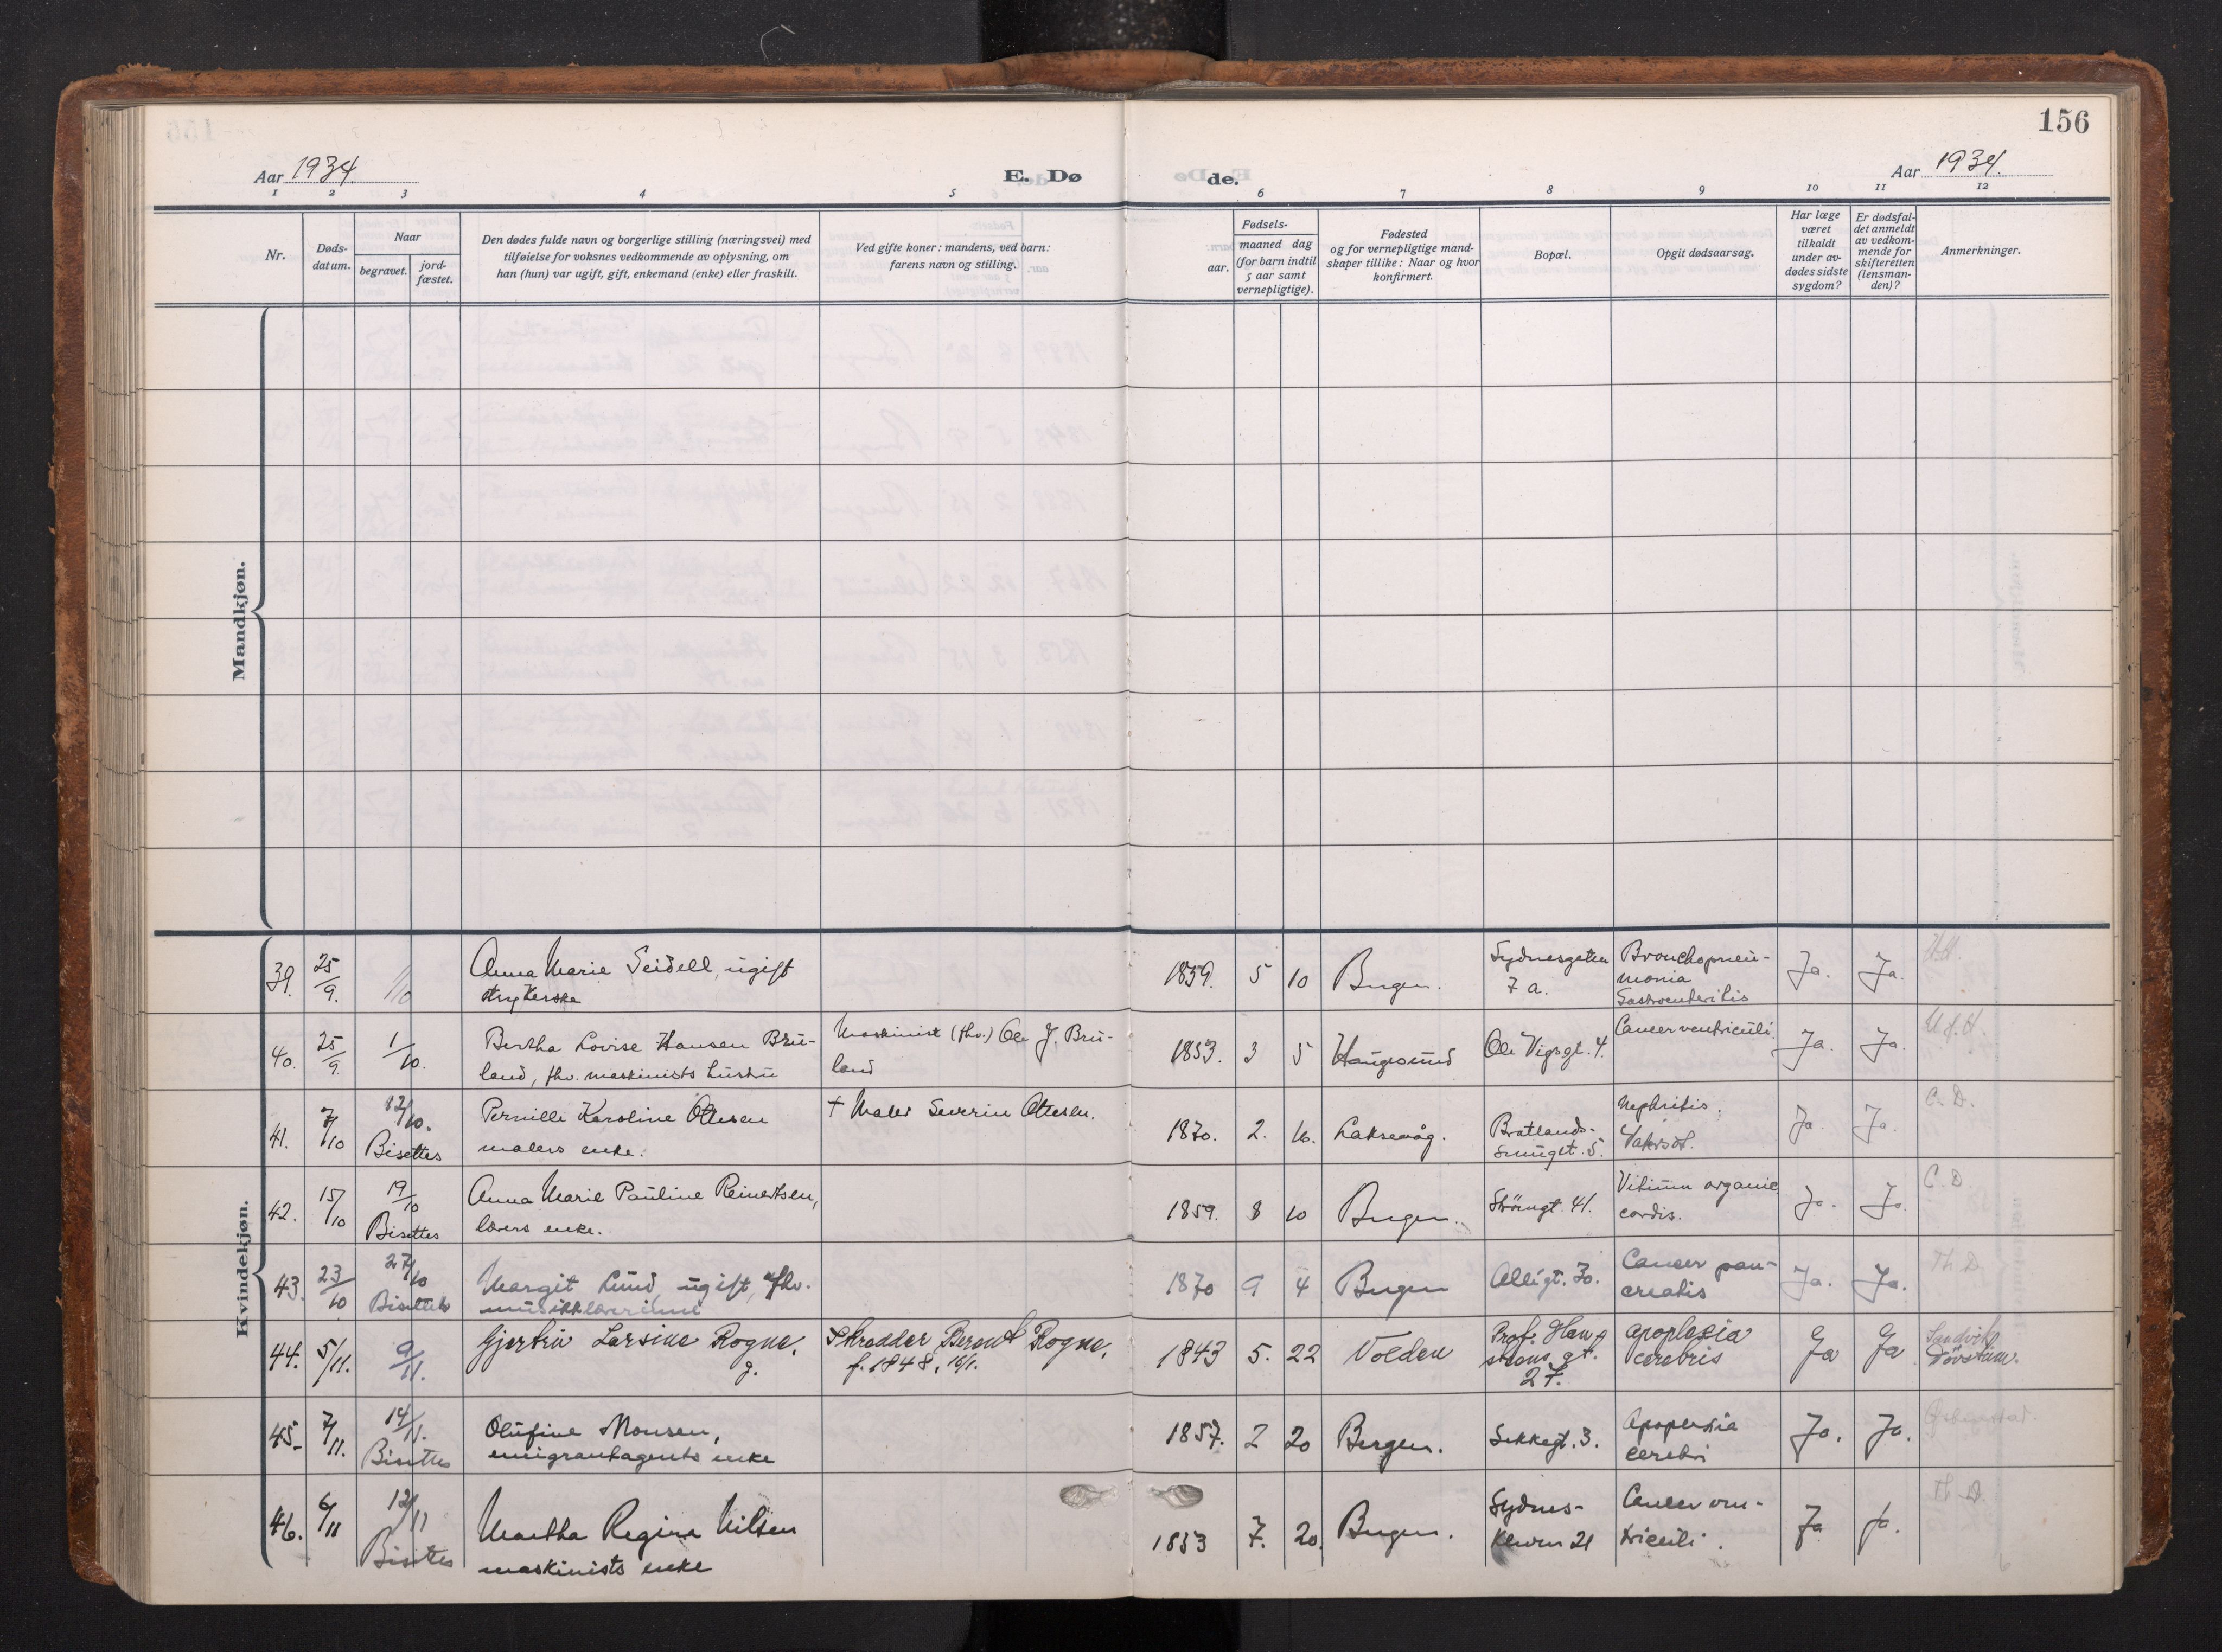 156
Aar 1934
E. Dø
de.
Aar 1934.
1 2 3 4 5 6 7 8 9 10 11 12
Nr.
Døds-
datum.
Naar
begravet.
jord-
fæstet.
Den dødes fulde navn og borgerlige stilling (næringsvei) med
tilføielse for voksnes vedkommende av oplysning, om
han (hun) var ugift, gift, enkemand (enke) eller fraskilt.
Ved gifte koner: mandens, ved barn:
farens navn og stilling.
Fødsels-
aar.
maaned dag
(for barn indtil
5 aar samt
vernepligtige).
Fødested
og for vernepligtige mand-
skaper tillike: Naar og hvor
konfirmert.
Bopæl.
Opgit dødsaarsag.
Har læge
været
tilkaldt
under av-
dødes sidste
sygdom?
Er dødsfal-
det anmeldt
av vedkom-
mende for
skifteretten
(lensman-
den)?
Anmerkninger.
Mandkjøn.
Kvindekjøn.
39. 25/9. 1/10 Anna Marie Seidell, ugift
strykerske
1859. 5 10 Bergen. Sydnesgaten
7 a.
Bronchopneu-
monia
Gastroenteritis
Ja. Ja.
40. 25/9. 1/10. Bertha Lovise Hansen Bru-
land, fhv. maskinists hustru
Maskinist (fhv.) Ole J. Bru-
land
1853. 3 5 Haugesund Ole Vigsgt. 4. Cancer ventriculi. Ja. Ja.
41. 7/10 12/10.
Bisettes
Pernille Karoline Ottesen
malers enke.
† Maler Severin Ottesen.
1870. 2. 16. Laksevåg. Bratlands-
smugt. 5.
Nephritis.
Ja. Ja. C. D.
42. 15/10 19/10
Bisettes
Anna Marie Pauline Reinertsen,
lærers enke.
1859. 8 10 Bergen. Strömgt. 41. Vitium organic
cordis.
Ja. Ja. C. D.
43. 23/10 27/10
Bisettes
Margit Lund, ugift, fhv.
musikklærerinne
1870 9 4 Bergen Allégt. 30. Cancer pan-
creatis
Ja. Ja. Th. D.
44. 5/11. 9/11. Gjertrü Larsine Rogne,
g.
Skrædder Berent Rogne,
f. 1848, 16/1.
1843 5. 22 Volden Prof. Han
steens gt.
27.
apoplexia
cerebris
Ja Ja
45. 7/11. 14/11.
Bisettes
Olufine Monsen,
emigrantagents enke
1857. 2 20 Bergen. Sekkegt. 3. Apopleksia
cerebri
Ja. Ja.
46. 6/11 12/11
Bisettes
Martha Regine Nilsen
maskinists enke
1853 7. 20. Bergen. Sydnes-
kleven 21
Cancer ven-
triculi.
Ja Ja. Th. D.